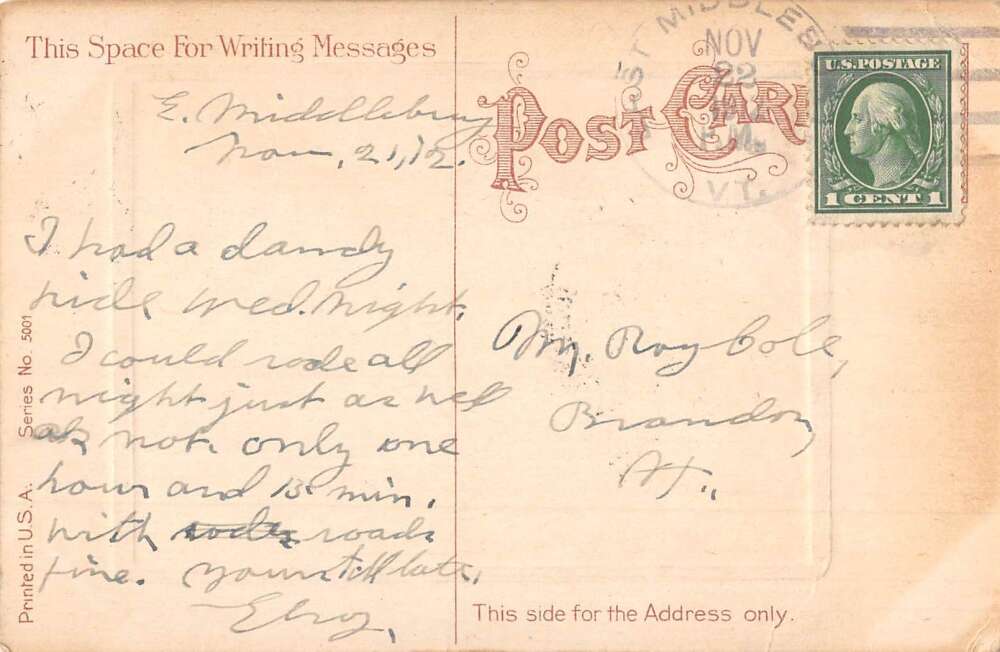 This Space For Writing Messages
POST CARD
EAST MIDDLEB
NOV
22
P.M.
VT.
U.S. POSTAGE
1 CENT 1
E. Middlebury
Nov, 21, 12.
I had a dandy
ride Wed. night.
I could rode all
night just as well
as not. only one
hour and 15 min.
with roads
fine. yours till late,
Elroy,
Mr. Roy Cole,
Brandon,
Vt.,
This side for the Address only.
Printed in U.S.A. Series No. 5001